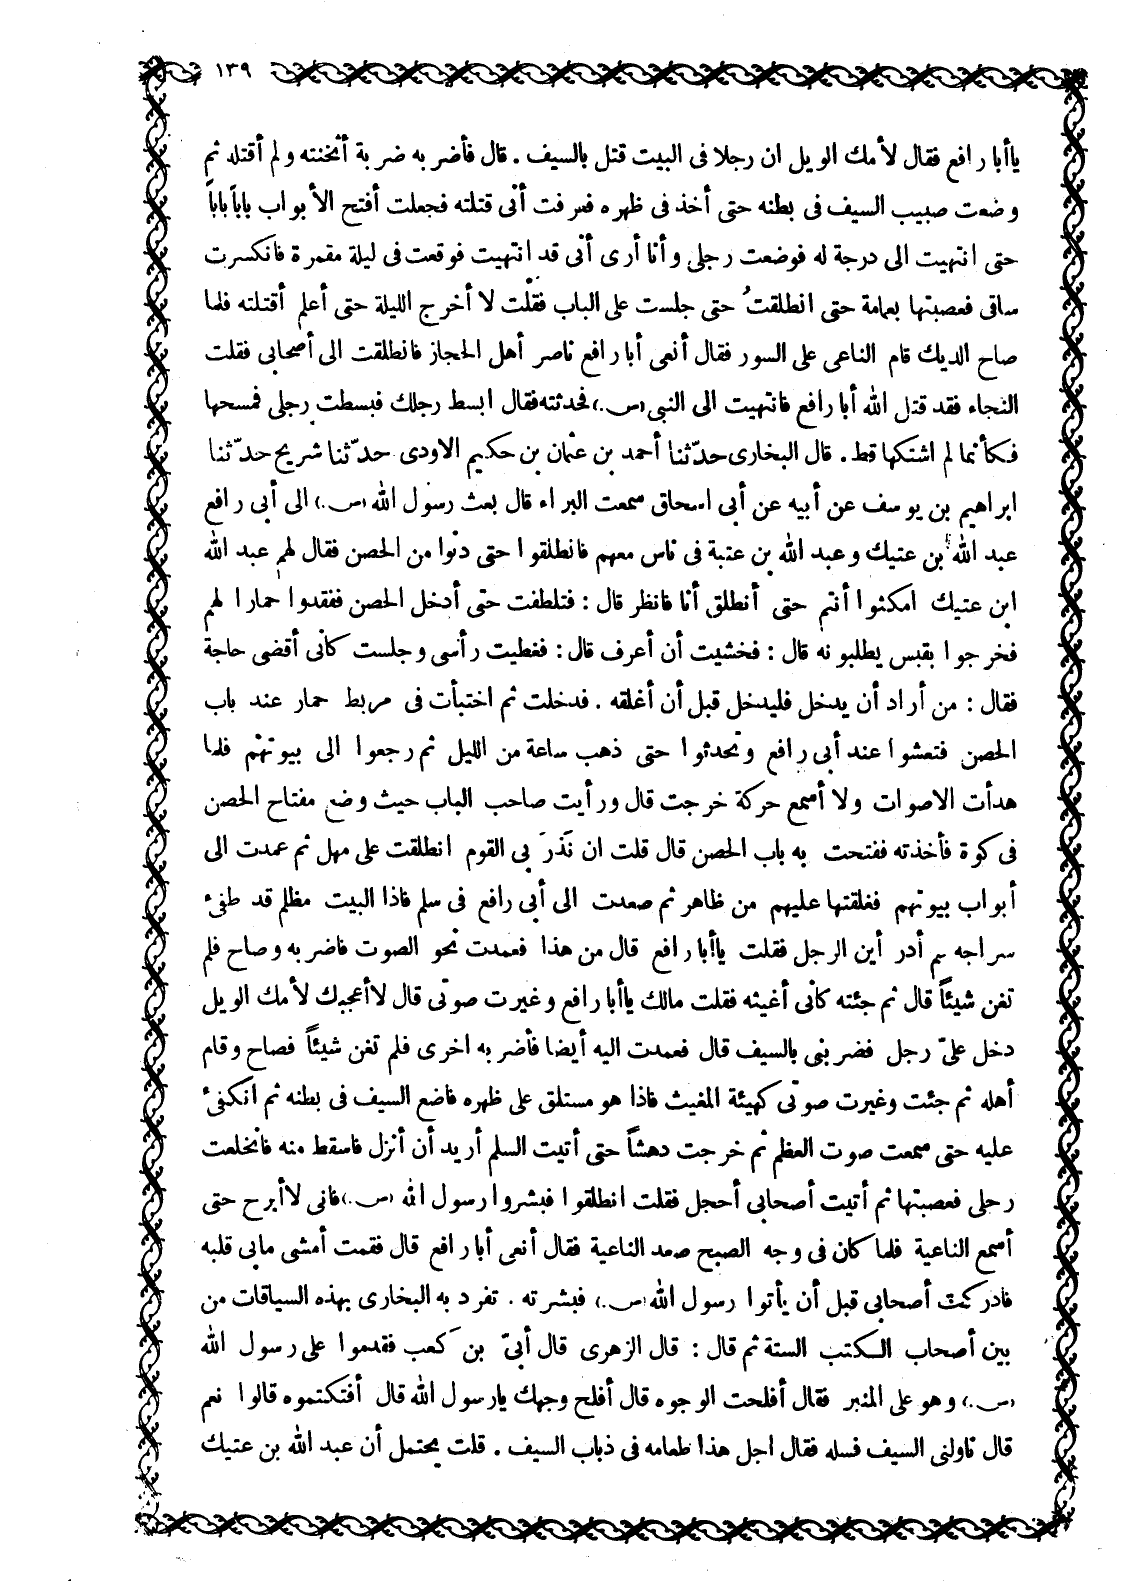 ١٣٩
ياأبا رافع فقال لأمك الويل ان رجلا فى البيت قتل بالسيف . قال فأضربه ضربة أثخنته ولم أقتله ثم
وضعت صبيب السيف فى بطنه حتى أخذ فى ظهره فعرفت أنى قتلته فجعلت أفتح الأبواب باباً باباً
حتى انتهيت الى درجة له فوضعت رجلى وأنا أرى أنى قد انتهيت فوقعت فى ليلة مقمرة فانكسرت
ساقى فعصبتها بعمامة حتى انطلقتُ حتى جلست على الباب فقلت لا أخرج الليلة حتى أعلم أقتلته فلما
صاح الديك قام الناعى على السور فقال أنعى أبا رافع ناصر أهل الحجاز فانطلقت الى أصحابى فقلت
النجاء فقد قتل الله أبا رافع فانتهيت الى النبى (ص.) فحدثته فقال ابسط رجلك فبسطت رجلى فمسحها
فكأنما لم اشتكها قط . قال البخارى حدّثنا أحمد بن عثمان بن حكيم الاودى حدّثنا شريح حدّثنا
ابراهيم بن يوسف عن أبيه عن أبى اسحاق سمعت البراء قال بعث رسول الله (ص.) الى أبى رافع
عبد الله بن عتيك وعبد الله بن عتبة فى ناس معهم فانطلقوا حتى دنوا من الحصن فقال لهم عبد الله
ابن عتيك امكثوا أنتم حتى أنطلق أنا فانظر قال : فتلطفت حتى أدخل الحصن ففقدوا حمارا لهم
فخرجوا بقبس يطلبونه قال : فخشيت أن أعرف قال : فغطيت رأسى وجلست كأنى أقضى حاجة
فقال : من أراد أن يدخل فليدخل قبل أن أغلقه . فدخلت ثم اختبأت فى مربط حمار عند باب
الحصن فتعشوا عند أبى رافع وتحدثوا حتى ذهب ساعة من الليل ثم رجعوا الى بيوتهم فلما
هدأت الاصوات ولا أسمع حركة خرجت قال ورأيت صاحب الباب حيث وضع مفتاح الحصن
فى كوة فأخذته ففتحت به باب الحصن قال قلت ان نَذرَ بى القوم انطلقت على مهل ثم عمدت الى
أبواب بيوتهم فغلقتها عليهم من ظاهر ثم صعدت الى أبى رافع فى سلم فاذا البيت مظلم قد طفىء
سراجه سم أدر أين الرجل فقلت ياأبا رافع قال من هذا فعمدت نحو الصوت فاضربه وصاح فلم
تغن شيئاً قال ثم جئته كأنى أغيثه فقلت مالك ياأبا رافع وغيرت صوتى قال لا أعجبك لأمك الويل
دخل علىّ رجل فضربنى بالسيف قال فعمدت اليه أيضا فأضربه اخرى فلم تغن شيئاً فصاح وقام
أهله ثم جئت وغيرت صوتى كهيئة المغيث فاذا هو مستلق على ظهره فاضع السيف فى بطنه ثم انكفىء
عليه حتى سمعت صوت العظم ثم خرجت دهشاً حتى أتيت السلم أريد أن أنزل فاسقط منه فانخلعت
رحلى فعصبتها ثم أتيت أصحابى أحجل فقلت انطلقوا فبشروا رسول الله (ص.) فانى لا أبرح حتى
أسمع الناعية فلما كان فى وجه الصبح صعد الناعية فقال أنعى أبا رافع قال فقمت أمشى مابى قلبه
فادركت أصحابى قبل أن يأتوا رسول الله (ص.) فبشرته . تفرد به البخارى بهذه السياقات من
بين أصحاب الكتب الستة ثم قال : قال الزهرى قال أبىّ بن كعب فقدموا على رسول الله
(ص.) وهو على المنبر فقال أفلحت الوجوه قال أفلح وجهك يارسول الله قال أفتكتموه قالوا نعم
قال ناولنى السيف فسله فقال اجل هذا طعامه فى ذباب السيف . قلت يحتمل أن عبد الله بن عتيك